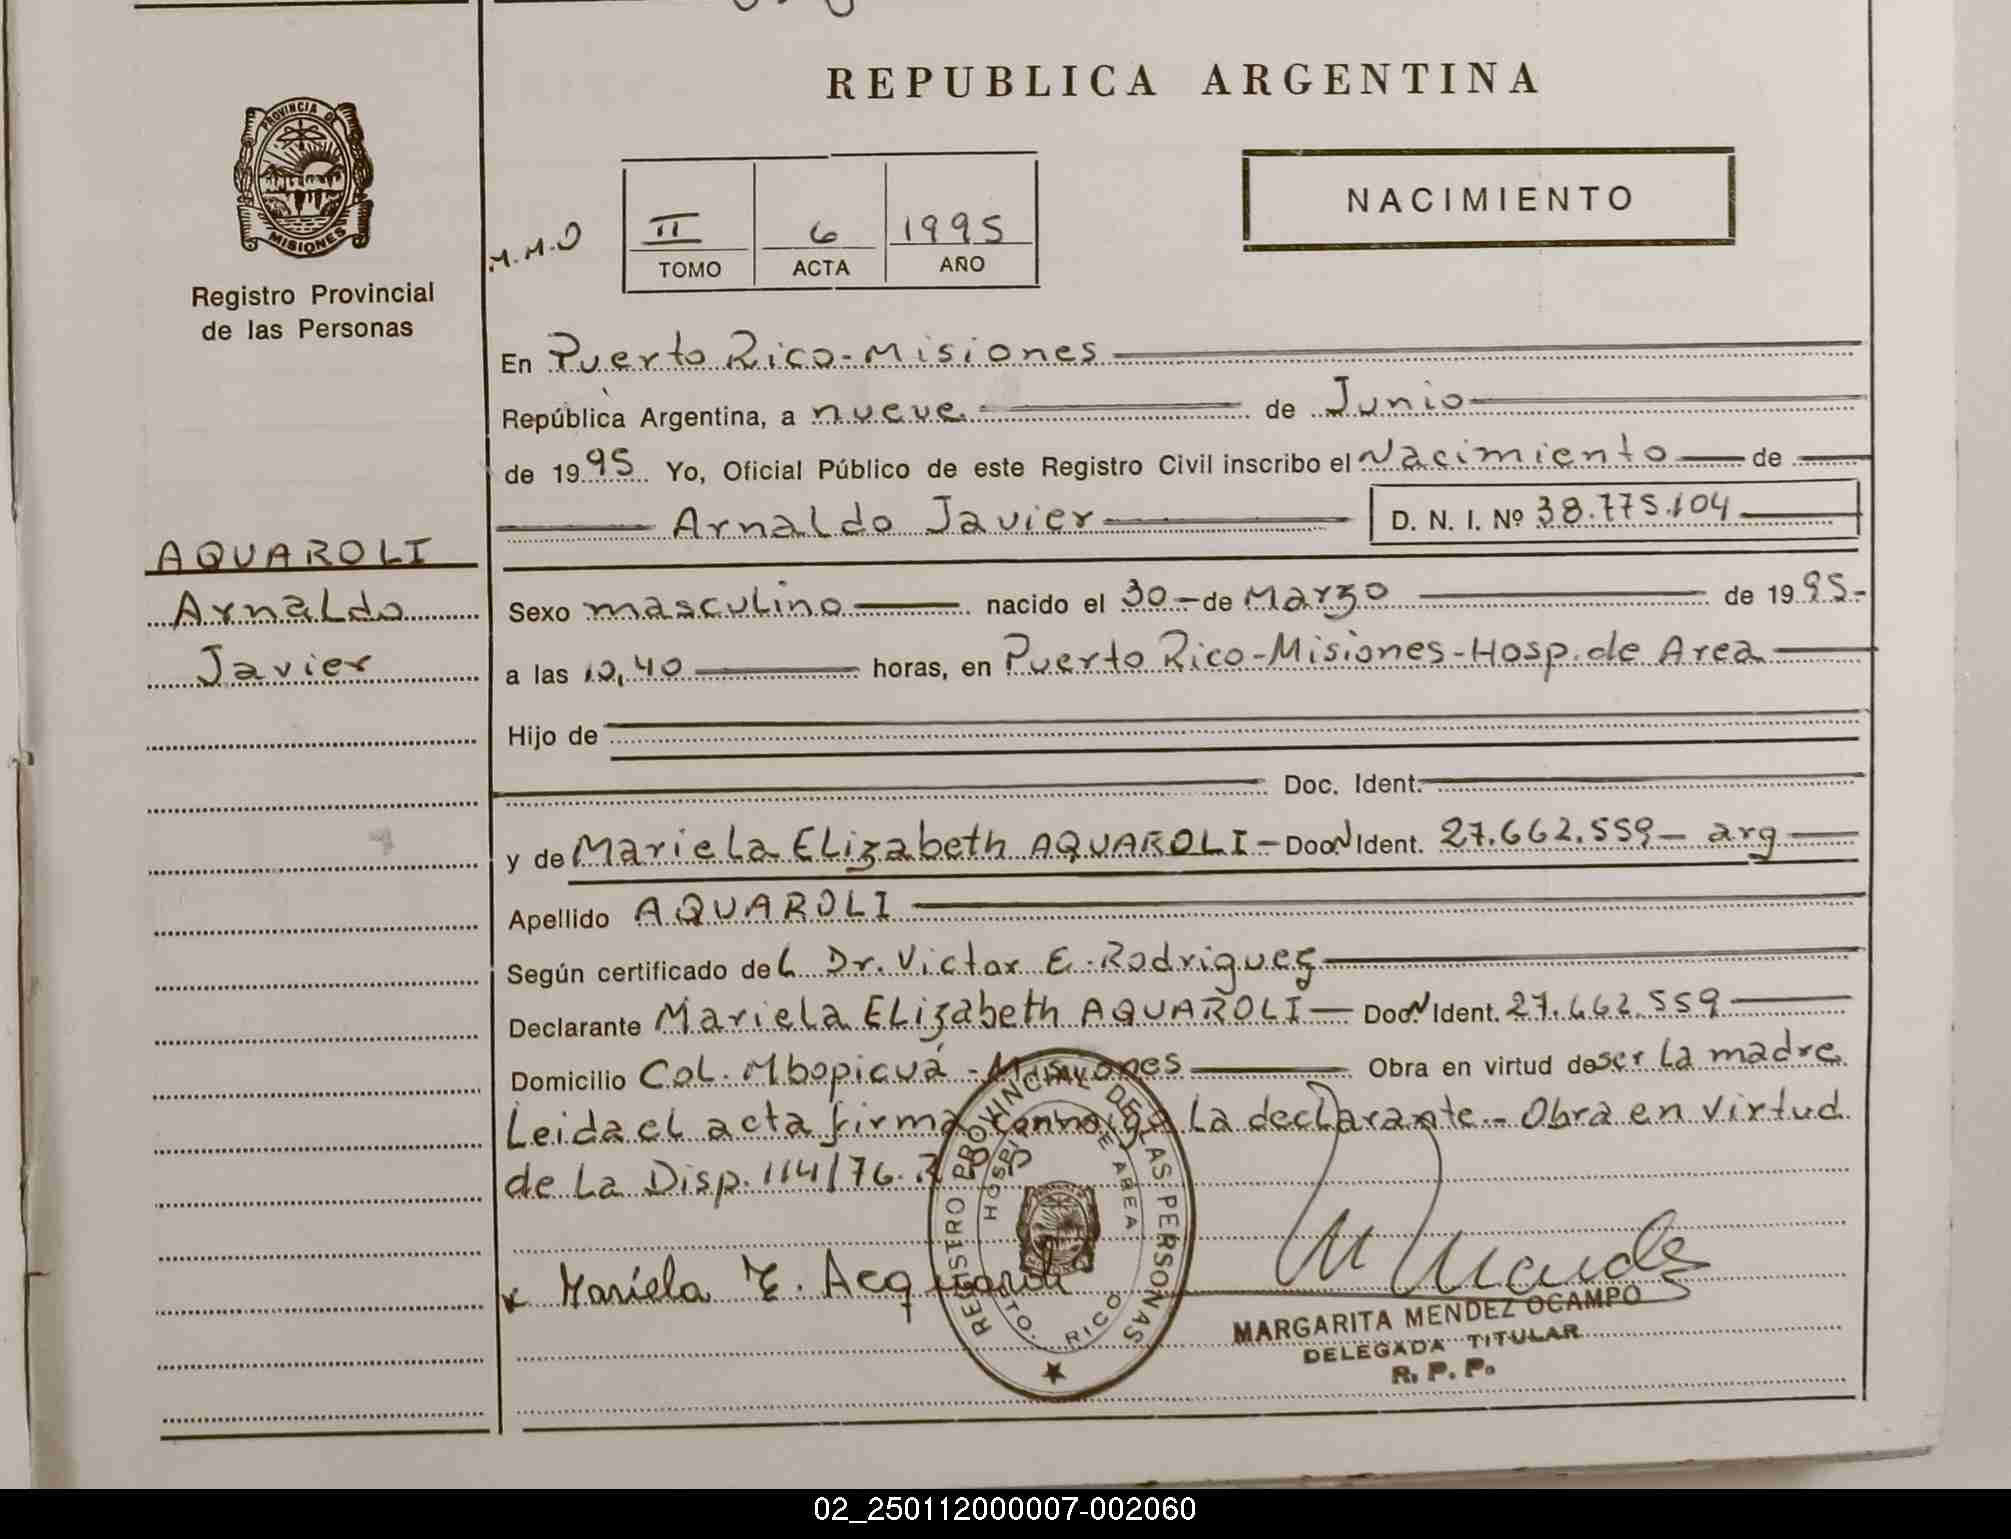 REPUBLICA ARGENTINA
PROVINCIA DE MISIONES
Registro Provincial
de las Personas
M.M.O
II 6 1995
TOMO ACTA AÑO
NACIMIENTO
En Puerto Rico - Misiones
República Argentina, a nueve de Junio
de 1995 Yo, Oficial Público de este Registro Civil inscribo el Nacimiento de
Arnaldo Javier D. N. I. Nº 38.775.104
AQUAROLI
Arnaldo
Javier
Sexo masculino nacido el 30 - de Marzo de 1995 -
a las 10,40 horas, en Puerto Rico - Misiones - Hosp. de Area
Hijo de
Doc. Ident.
y de Mariela Elizabeth AQUAROLI - Doc. Ident. 27.662.559 - arg
Apellido AQUAROLI
Según certificado del Dr. Victor E. Rodriguez
Declarante Mariela Elizabeth AQUAROLI - Doc. Ident. 27.662.559
Domicilio Col. Mbopicuá - Misiones Obra en virtud de ser la madre
Leida el acta firma conmigo la declarante - Obra en virtud
de la Disp. 114/76.
x Mariela E. Acquaroli
REGISTRO PROVINCIAL DE LAS PERSONAS
HOSPI DE AREA
PTO. RICO
MARGARITA MENDEZ OCAMPO
DELEGADA TITULAR
R. P. P.
02_250112000007-002060